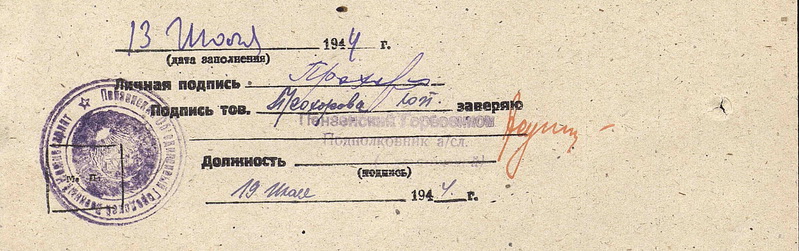 13 Июля 1944 г.
(дата заполнения)
Личная подпись Прохоров
Подпись тов. Прохорова заверяю
Пензенский Горвоенком
Подполковник а/сл.
Должность
(подпись)
М. П.
19 Июля 1944. г.